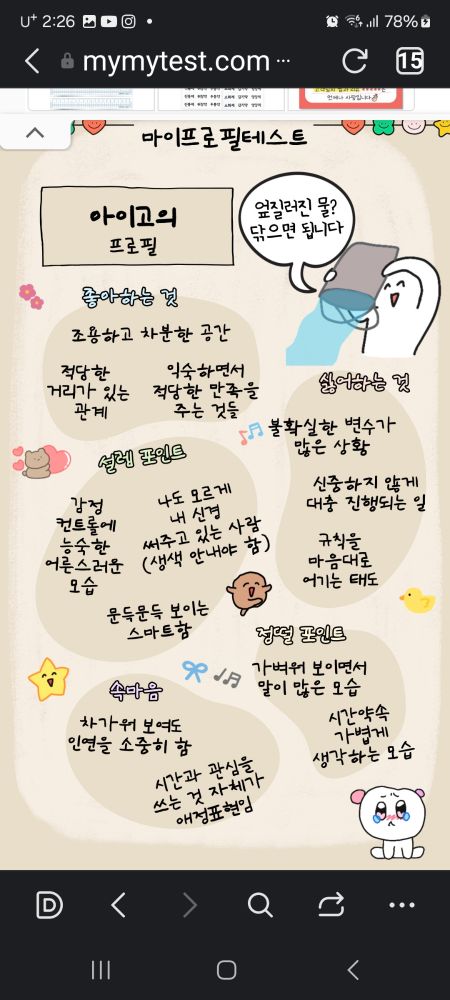 U+ 2:26
78%
mymytest.com ...
15
마이프로필테스트
아이고의
프로필
엎질러진 물?
닦으면 됩니다
좋아하는 것
조용하고 차분한 공간
적당한
거리가 있는
관계
익숙하면서
적당한 만족을
주는 것들
싫어하는 것
불확실한 변수가
많은 상황
신중하지 않게
대충 진행되는 일
규칙을
마음대로
어기는 태도
설렘 포인트
감정
컨트롤에
능숙한
어른스러운
모습
나도 모르게
내 신경
써주고 있는 사람
(생색 안내야 함)
문득문득 보이는
스마트함
정떨 포인트
가벼워 보이면서
말이 많은 모습
시간약속
가볍게
생각하는 모습
속마음
차가워 보여도
인연을 소중히 함
시간과 관심을
쓰는 것 자체가
애정표현임